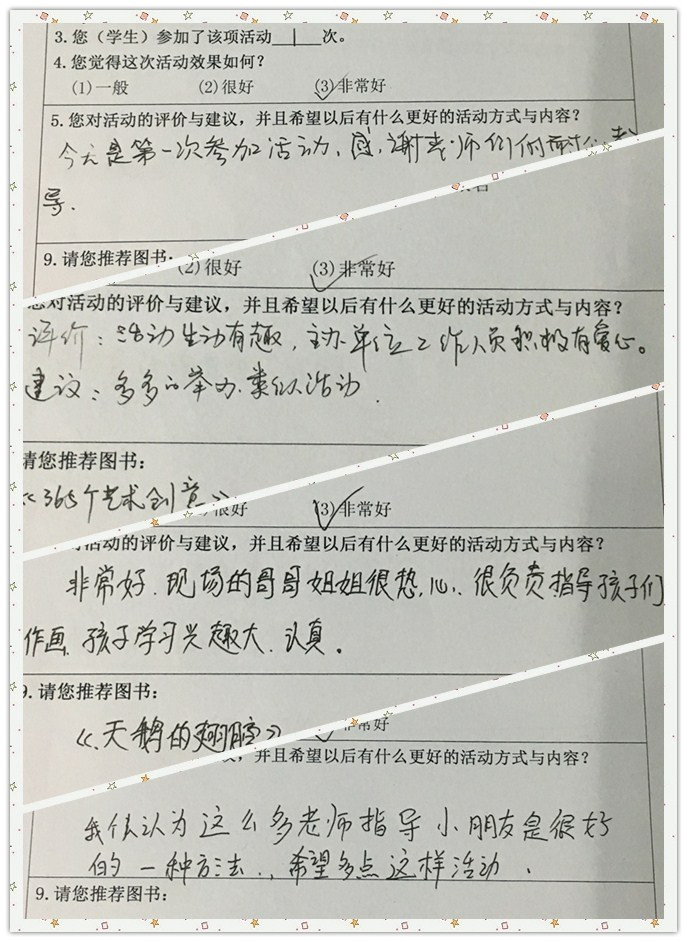 3.您（学生）参加了该项活动 1 次。
4.您觉得这次活动效果如何？
(1)一般 (2)很好 (3)非常好
5.您对活动的评价与建议，并且希望以后有什么更好的活动方式与内容？
今天是第一次参加活动、感谢老师们的
导.
9.请您推荐图书:
(2)很好 (3)非常好
您对活动的评价与建议，并且希望以后有什么更好的活动方式与内容？
评价：活动生动有趣，主办单位工作人员积极有爱心。
建议：多多的举办类似活动.
请您推荐图书:
《365个艺术创意》
很好 (3)非常好
活动的评价与建议，并且希望以后有什么更好的活动方式与内容？
非常好.现场的哥哥姐姐很热心、很负责指导孩子们
作画.孩子学习兴趣大.认真。
9.请您推荐图书:
《天鹅的翅膀》
非常好
，并且希望以后有什么更好的活动方式与内容？
我认为这么多老师指导小朋友是很好
的一种方法.，希望多点这样活动.
9.请您推荐图书: